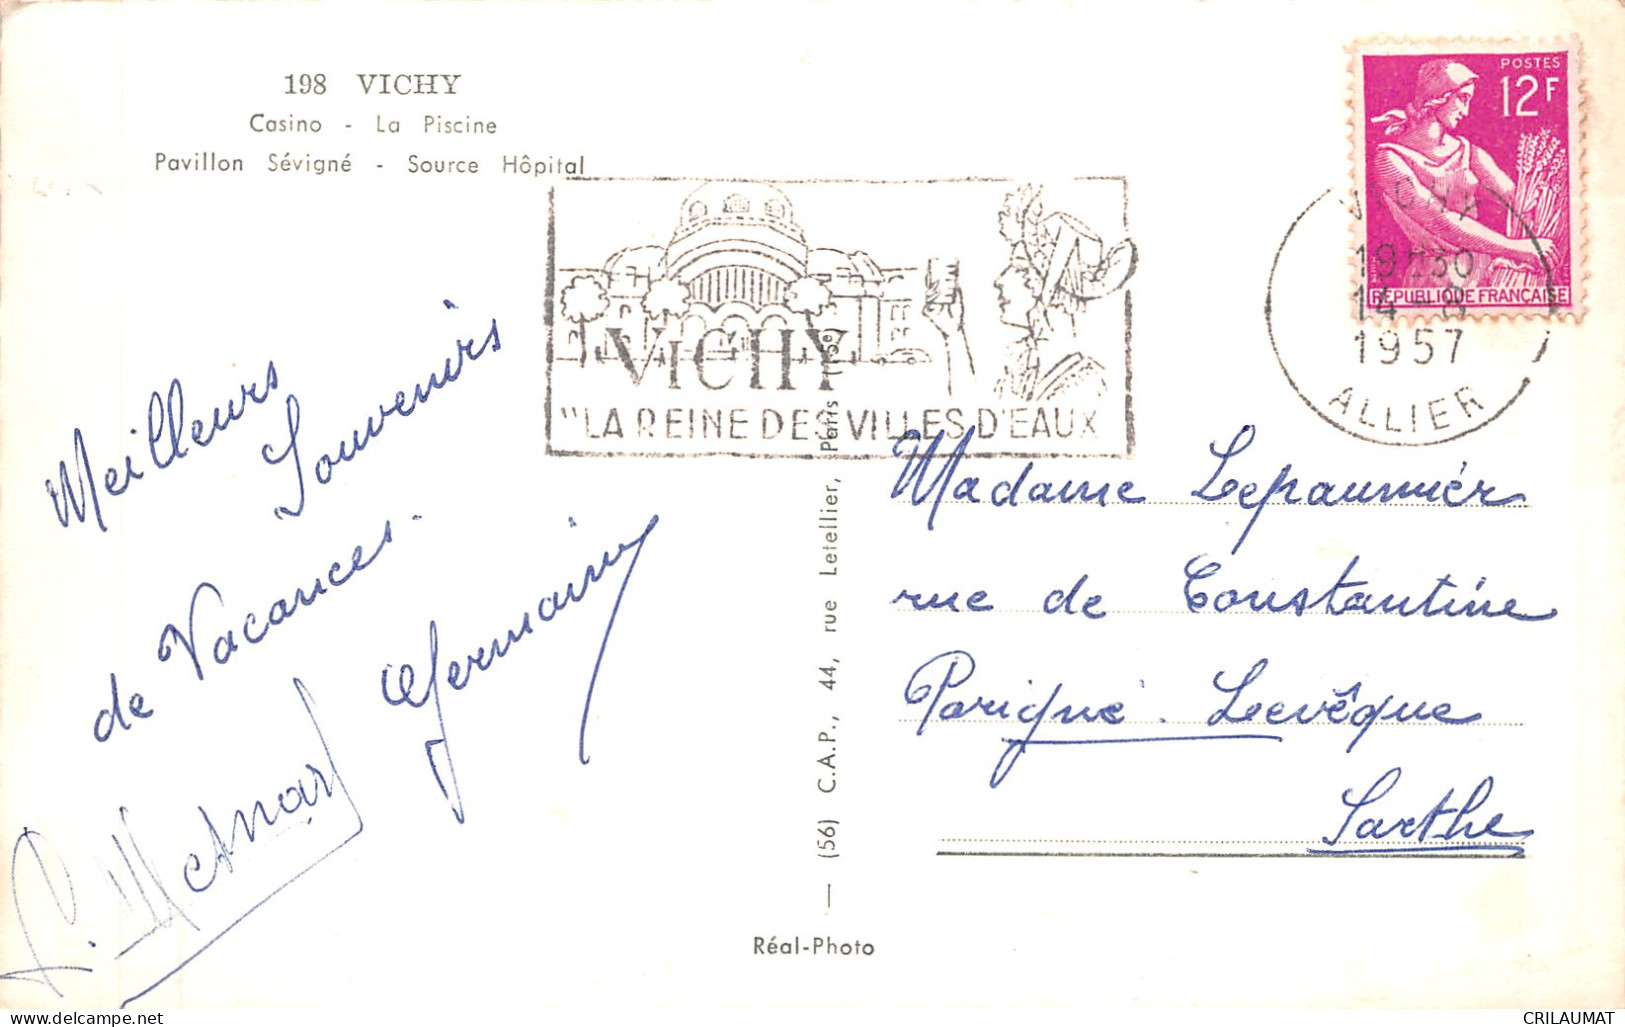 198 VICHY
Casino - La Piscine
Pavillon Sévigné - Source Hôpital
VICHY
"LA REINE DES VILLES D'EAUX
POSTES
12F
RÉPUBLIQUE FRANÇAISE
VICHY
19H30
14-8
1957
ALLIER
Meilleurs
Souvenirs
de Vacances.
Germaine
L. Mesnard
(56) C.A.P., 44, rue Letellier, Paris (15e)
Réal-Photo
Madame Lepaumiér
rue de Constantine
Parigné. Levêque
Sarthe
www.delcampe.net
CRILAUMAT